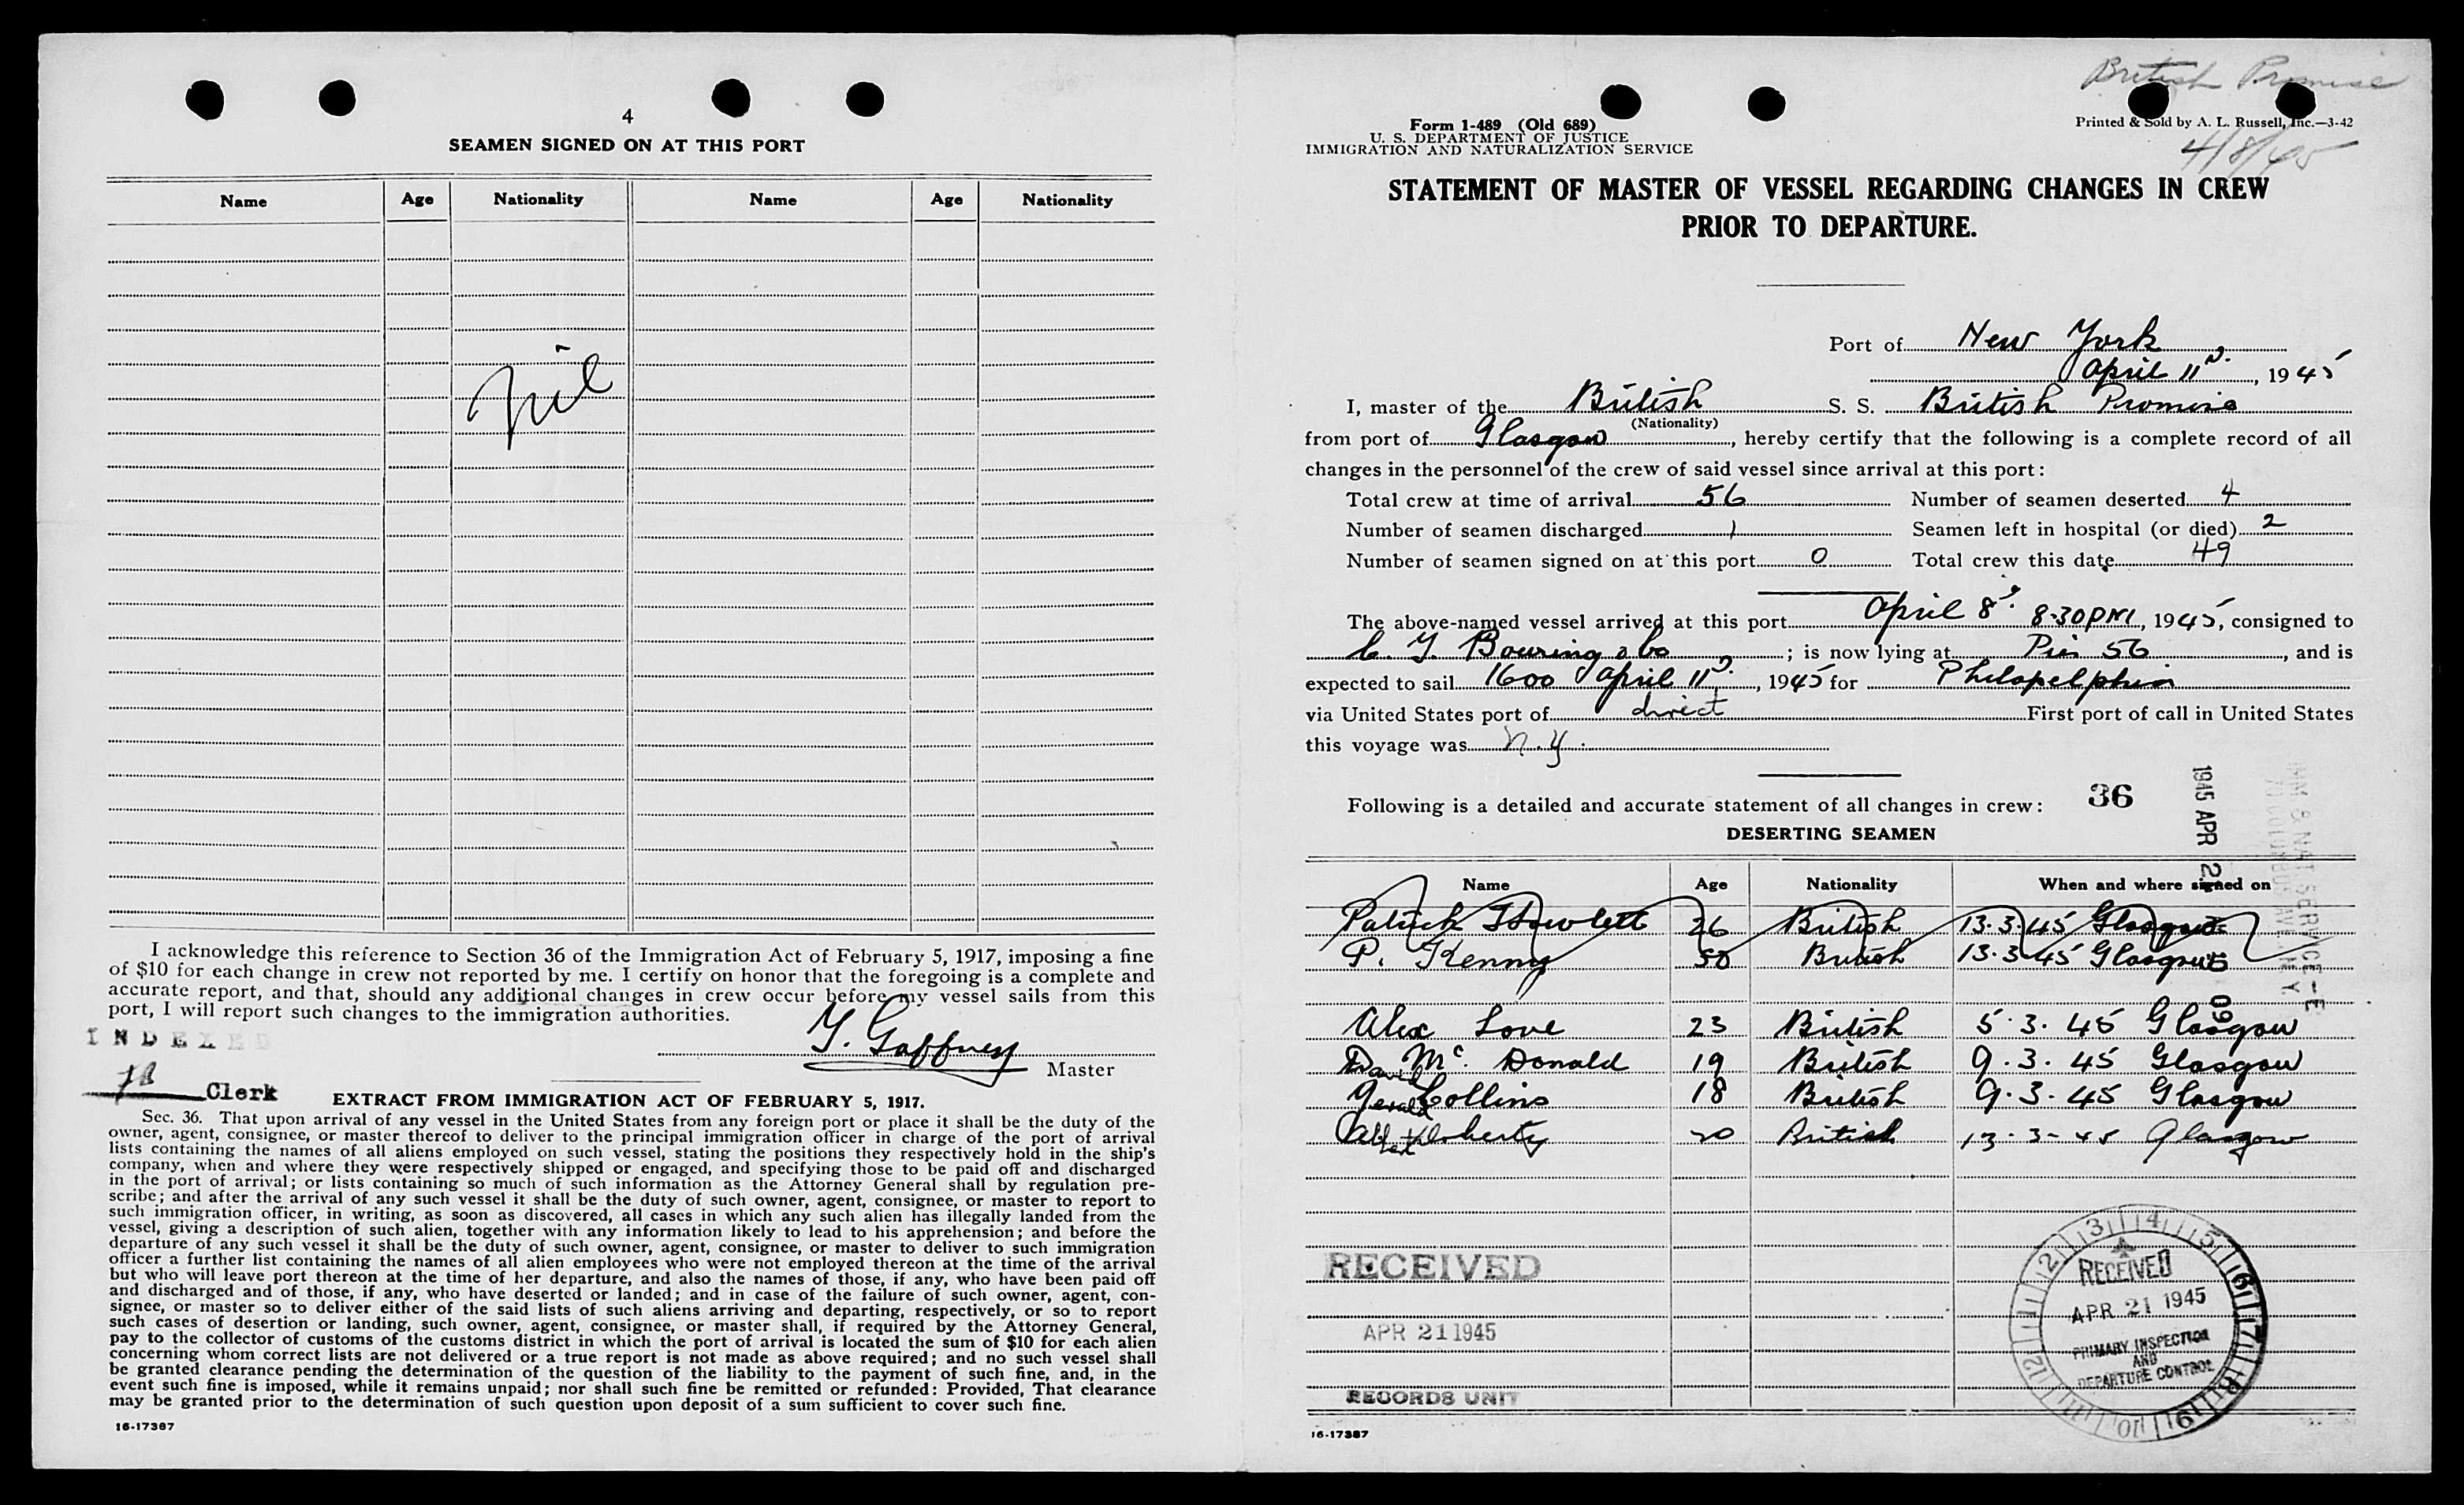 4
SEAMEN SIGNED ON AT THIS PORT
Name Age Nationality Name Age Nationality
Nil
I acknowledge this reference to Section 36 of the Immigration Act of February 5, 1917, imposing a fine
of $10 for each change in crew not reported by me. I certify on honor that the foregoing is a complete and
accurate report, and that, should any additional changes in crew occur before my vessel sails from this
port, I will report such changes to the immigration authorities.
INDEXED
Y. Gaffney
Master
Clerk
EXTRACT FROM IMMIGRATION ACT OF FEBRUARY 5, 1917.
Sec. 36. That upon arrival of any vessel in the United States from any foreign port or place it shall be the duty of the
owner, agent, consignee, or master thereof to deliver to the principal immigration officer in charge of the port of arrival
lists containing the names of all aliens employed on such vessel, stating the positions they respectively hold in the ship's
company, when and where they were respectively shipped or engaged, and specifying those to be paid off and discharged
in the port of arrival; or lists containing so much of such information as the Attorney General shall by regulation pre-
scribe; and after the arrival of any such vessel it shall be the duty of such owner, agent, consignee, or master to report to
such immigration officer, in writing, as soon as discovered, all cases in which any such alien has illegally landed from the
vessel, giving a description of such alien, together with any information likely to lead to his apprehension; and before the
departure of any such vessel it shall be the duty of such owner, agent, consignee, or master to deliver to such immigration
officer a further list containing the names of all alien employees who were not employed thereon at the time of the arrival
but who will leave port thereon at the time of her departure, and also the names of those, if any, who have been paid off
and discharged and of those, if any, who have deserted or landed; and in case of the failure of such owner, agent, con-
signee, or master so to deliver either of the said lists of such aliens arriving and departing, respectively, or so to report
such cases of desertion or landing, such owner, agent, consignee, or master shall, if required by the Attorney General,
pay to the collector of customs of the customs district in which the port of arrival is located the sum of $10 for each alien
concerning whom correct lists are not delivered or a true report is not made as above required; and no such vessel shall
be granted clearance pending the determination of the question of the liability to the payment of such fine, and, in the
event such fine is imposed, while it remains unpaid; nor shall such fine be remitted or refunded: Provided, That clearance
may be granted prior to the determination of such question upon deposit of a sum sufficient to cover such fine.
16-17387
British Promise
Form I-489 (Old 689)
U. S. DEPARTMENT OF JUSTICE
IMMIGRATION AND NATURALIZATION SERVICE
Printed & Sold by A. L. Russell, Inc.—3-42
4/8/45
STATEMENT OF MASTER OF VESSEL REGARDING CHANGES IN CREW
PRIOR TO DEPARTURE.
Port of New York
April 11, 1945
I, master of the British S. S. British Promise
(Nationality)
from port of Glasgow, hereby certify that the following is a complete record of all
changes in the personnel of the crew of said vessel since arrival at this port:
Total crew at time of arrival 56 Number of seamen deserted 4
Number of seamen discharged 1 Seamen left in hospital (or died) 2
Number of seamen signed on at this port 0 Total crew this date 49
The above-named vessel arrived at this port April 8 8.30 PM, 1945, consigned to
C. T. Bowring & Co; is now lying at Pier 56, and is
expected to sail 1600 April 11, 1945 for Philapelphia
via United States port of direct First port of call in United States
this voyage was N.Y.
Following is a detailed and accurate statement of all changes in crew: 36
1945 APR 2
DESERTING SEAMEN
Name Age Nationality When and where signed on
Patrick Howlett 26 British 13.3.45 Glasgow
P. Kenny 50 British 13.3.45 Glasgow
Alex Love 23 British 5.3.45 Glasgow
David McDonald 19 British 9.3.45 Glasgow
Gerald Collins 18 British 9.3.45 Glasgow
Albert Doherty 20 British 13-3-45 Glasgow
RECEIVED
APR 21 1945
RECORDS UNIT
RECEIVED
APR 21 1945
PRIMARY INSPECTION
AND
DEPARTURE CONTROL
16-17387